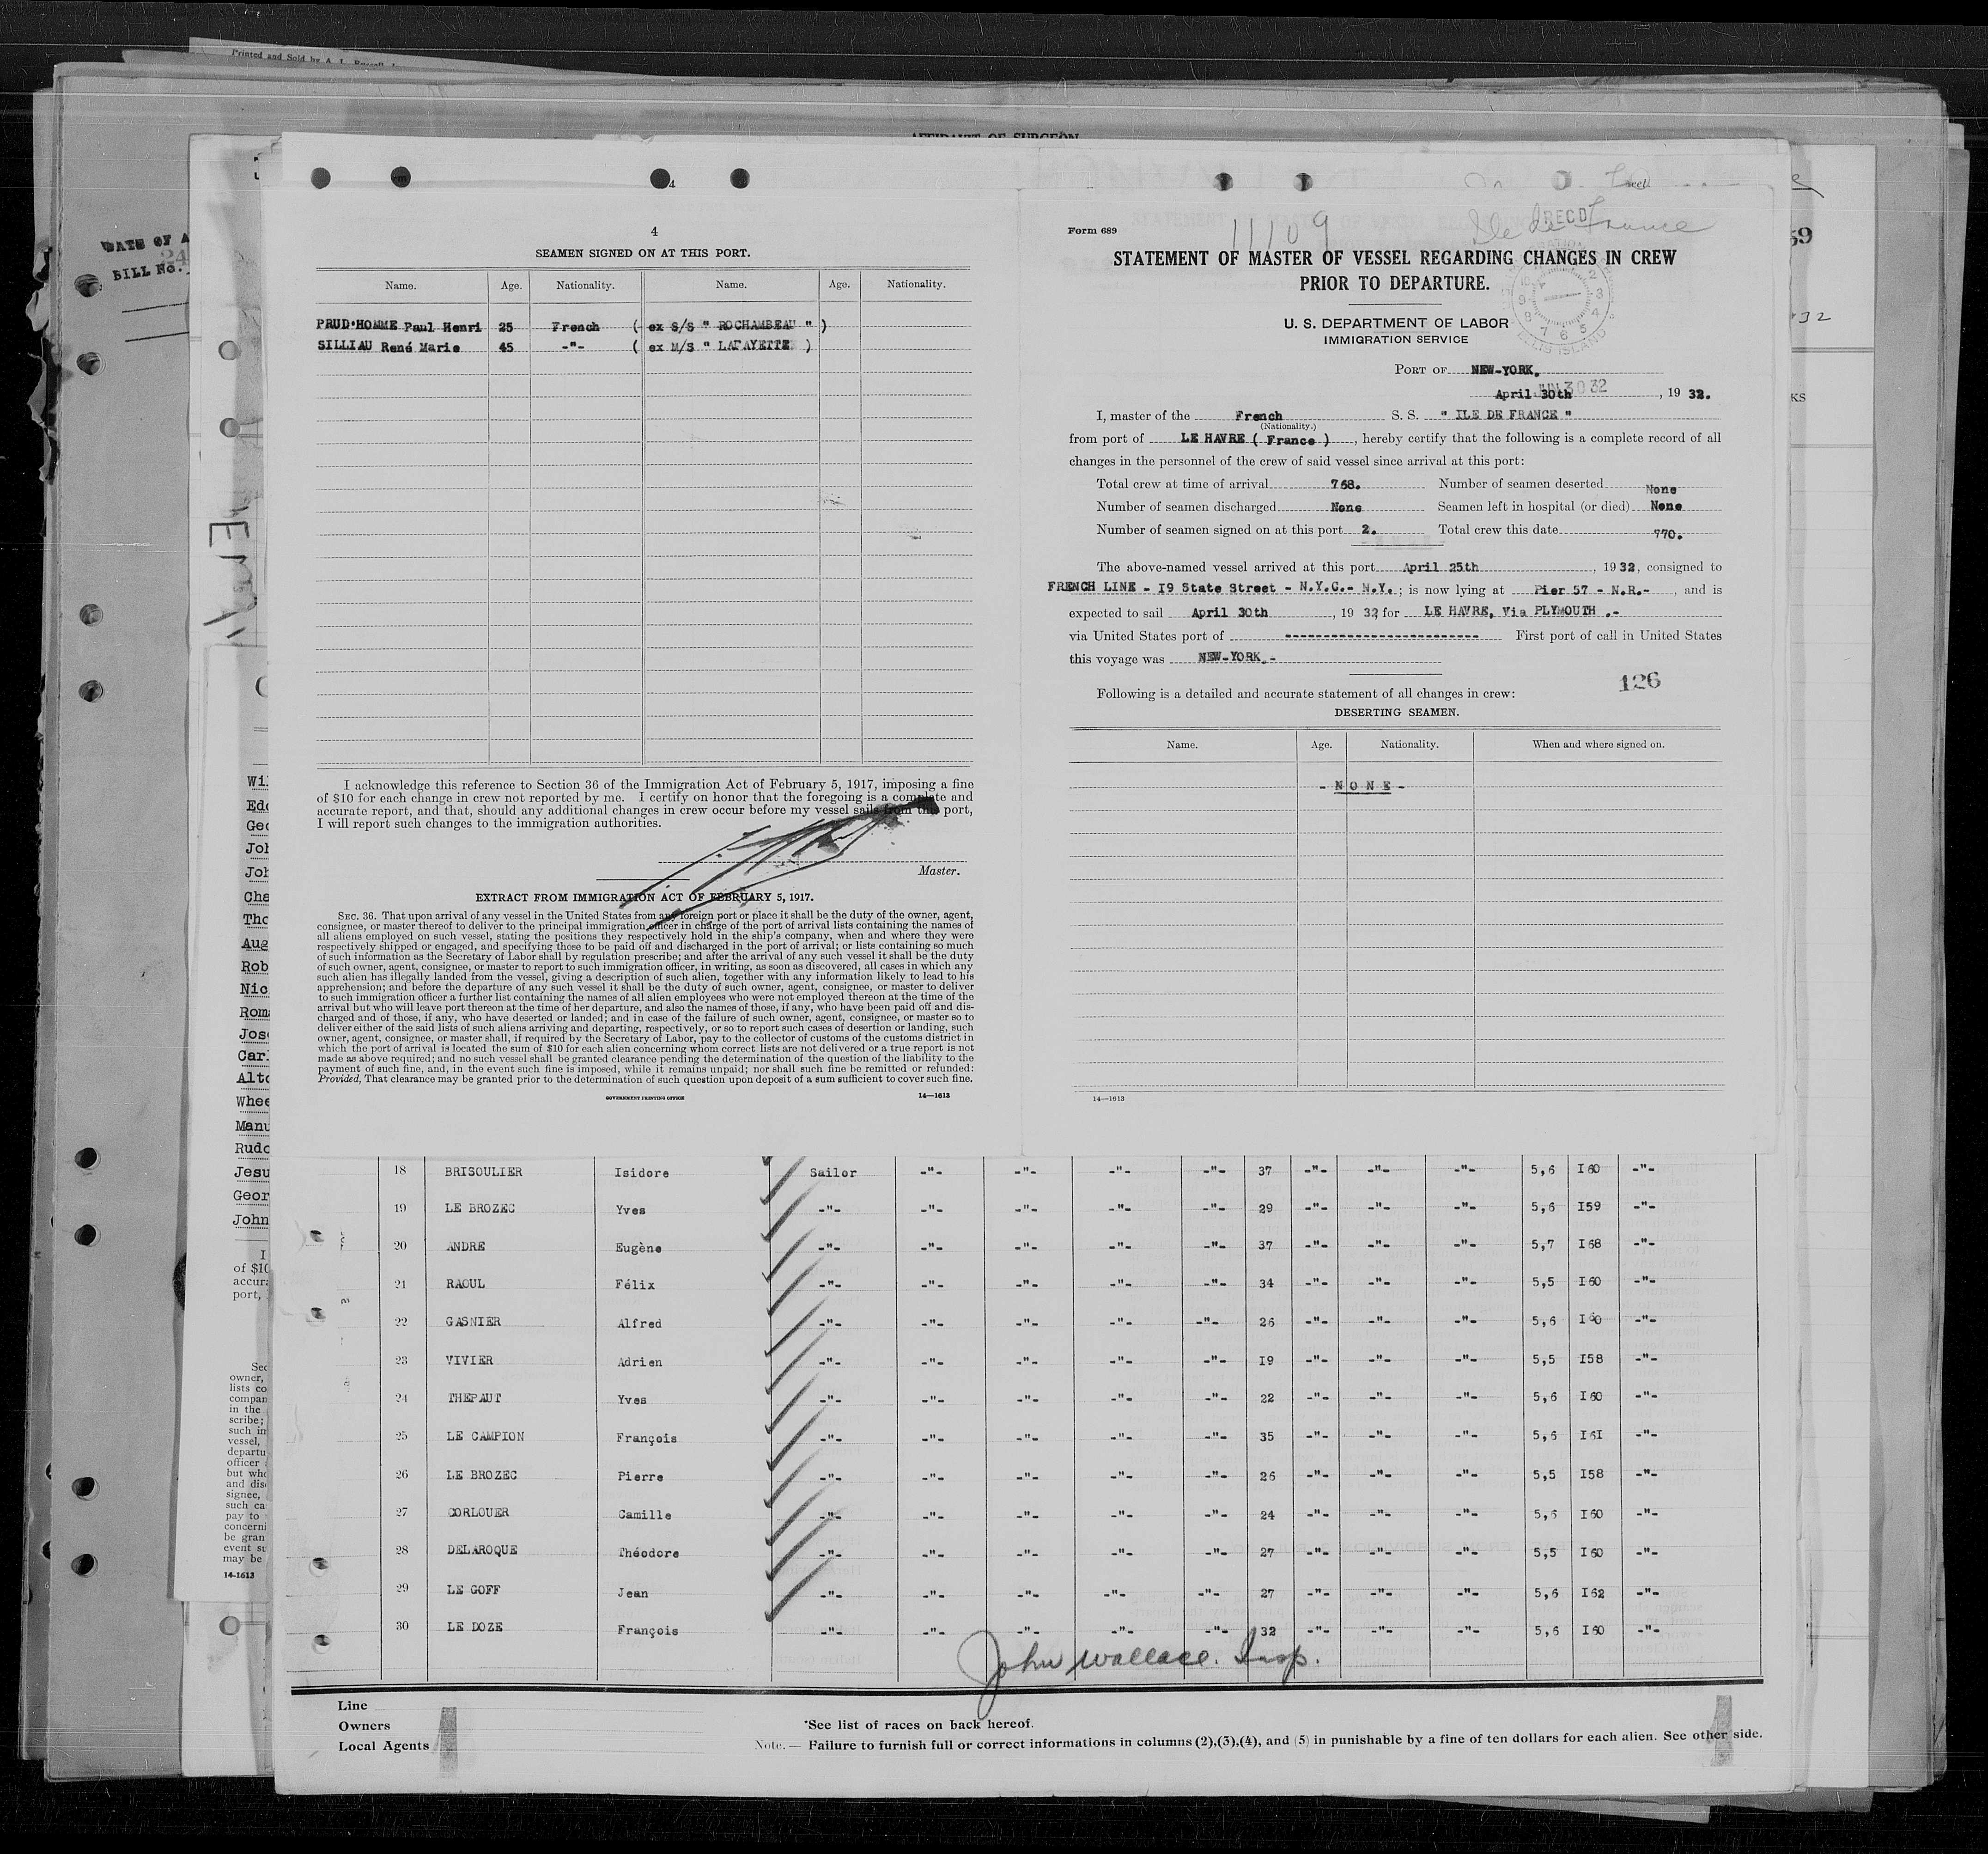 Printed and Sold by A. L.
AFFIDAVIT OF SURGEON
DATE OF A
BILL No.
4
4
SEAMEN SIGNED ON AT THIS PORT.
Name. Age. Nationality. Name. Age. Nationality.
PRUD'HOMME Paul Henri 25 French ( ex S/S " ROCHAMBEAU " )
SILLIAU René Marie 45 -"- ( ex M/S " LAFAYETTE )
I acknowledge this reference to Section 36 of the Immigration Act of February 5, 1917, imposing a fine
of $10 for each change in crew not reported by me. I certify on honor that the foregoing is a complete and
accurate report, and that, should any additional changes in crew occur before my vessel sails from this port,
I will report such changes to the immigration authorities.
Master.
EXTRACT FROM IMMIGRATION ACT OF FEBRUARY 5, 1917.
SEC. 36. That upon arrival of any vessel in the United States from any foreign port or place it shall be the duty of the owner, agent,
consignee, or master thereof to deliver to the principal immigration officer in charge of the port of arrival lists containing the names of
all aliens employed on such vessel, stating the positions they respectively hold in the ship's company, when and where they were
respectively shipped or engaged, and specifying those to be paid off and discharged in the port of arrival; or lists containing so much
of such information as the Secretary of Labor shall by regulation prescribe; and after the arrival of any such vessel it shall be the duty
of such owner, agent, consignee, or master to report to such immigration officer, in writing, as soon as discovered, all cases in which any
such alien has illegally landed from the vessel, giving a description of such alien, together with any information likely to lead to his
apprehension; and before the departure of any such vessel it shall be the duty of such owner, agent, consignee, or master to deliver
to such immigration officer a further list containing the names of all alien employees who were not employed thereon at the time of the
arrival but who will leave port thereon at the time of her departure, and also the names of those, if any, who have been paid off and dis-
charged and of those, if any, who have deserted or landed; and in case of the failure of such owner, agent, consignee, or master so to
deliver either of the said lists of such aliens arriving and departing, respectively, or so to report such cases of desertion or landing, such
owner, agent, consignee, or master shall, if required by the Secretary of Labor, pay to the collector of customs of the customs district in
which the port of arrival is located the sum of $10 for each alien concerning whom correct lists are not delivered or a true report is not
made as above required; and no such vessel shall be granted clearance pending the determination of the question of the liability to the
payment of such fine, and, in the event such fine is imposed, while it remains unpaid; nor shall such fine be remitted or refunded:
Provided, That clearance may be granted prior to the determination of such question upon deposit of a sum sufficient to cover such fine.
GOVERNMENT PRINTING OFFICE 14—1613
Form 689 11109 Ile de France
RECD
STATEMENT OF MASTER OF VESSEL REGARDING CHANGES IN CREW
PRIOR TO DEPARTURE.
ELLIS ISLAND
U. S. DEPARTMENT OF LABOR
IMMIGRATION SERVICE
PORT OF NEW-YORK.
April 30th, 1932.
I, master of the French S. S. " ILE DE FRANCE "
(Nationality.)
from port of LE HAVRE ( France ), hereby certify that the following is a complete record of all
changes in the personnel of the crew of said vessel since arrival at this port:
Total crew at time of arrival 768. Number of seamen deserted None
Number of seamen discharged None Seamen left in hospital (or died) None
Number of seamen signed on at this port 2. Total crew this date 770.
The above-named vessel arrived at this port April 25th, 1932, consigned to
FRENCH LINE - I9 State Street - N.Y.C.- N.Y.; is now lying at Pier 57 - N.R.-, and is
expected to sail April 30th, 1932, for LE HAVRE, Via PLYMOUTH .-
via United States port of ------------------------- First port of call in United States
this voyage was NEW-YORK.-
126
Following is a detailed and accurate statement of all changes in crew:
DESERTING SEAMEN.
Name. Age. Nationality. When and where signed on.
- N O N E -
14—1613
18 BRISOULIER Isidore Sailor -"- -"- -"- -"- 37 -"- -"- -"- 5,6 I60 -"-
19 LE BROZEC Yves -"- -"- -"- -"- -"- 29 -"- -"- -"- 5,6 I59 -"-
20 ANDRE Eugène -"- -"- -"- -"- -"- 37 -"- -"- -"- 5,7 I68 -"-
21 RAOUL Félix -"- -"- -"- -"- -"- 34 -"- -"- -"- 5,5 I60 -"-
22 GASNIER Alfred -"- -"- -"- -"- -"- 26 -"- -"- -"- 5,6 I60 -"-
23 VIVIER Adrien -"- -"- -"- -"- -"- I9 -"- -"- -"- 5,5 I58 -"-
24 THEPAUT Yves -"- -"- -"- -"- -"- 22 -"- -"- -"- 5,6 I60 -"-
25 LE CAMPION François -"- -"- -"- -"- -"- 35 -"- -"- -"- 5,6 I6I -"-
26 LE BROZEC Pierre -"- -"- -"- -"- -"- 26 -"- -"- -"- 5,5 I58 -"-
27 CORLOUER Camille -"- -"- -"- -"- -"- 24 -"- -"- -"- 5,6 I60 -"-
28 DELAROQUE Théodore -"- -"- -"- -"- -"- 27 -"- -"- -"- 5,5 I60 -"-
29 LE GOFF Jean -"- -"- -"- -"- -"- 27 -"- -"- -"- 5,6 I62 -"-
30 LE DOZE François -"- -"- -"- -"- -"- 32 -"- -"- -"- 5,6 I60 -"-
John Wallace. Insp.
Line
Owners
Local Agents
*See list of races on back hereof.
Note.— Failure to furnish full or correct informations in columns (2),(3),(4), and (5) in punishable by a fine of ten dollars for each alien. See other side.